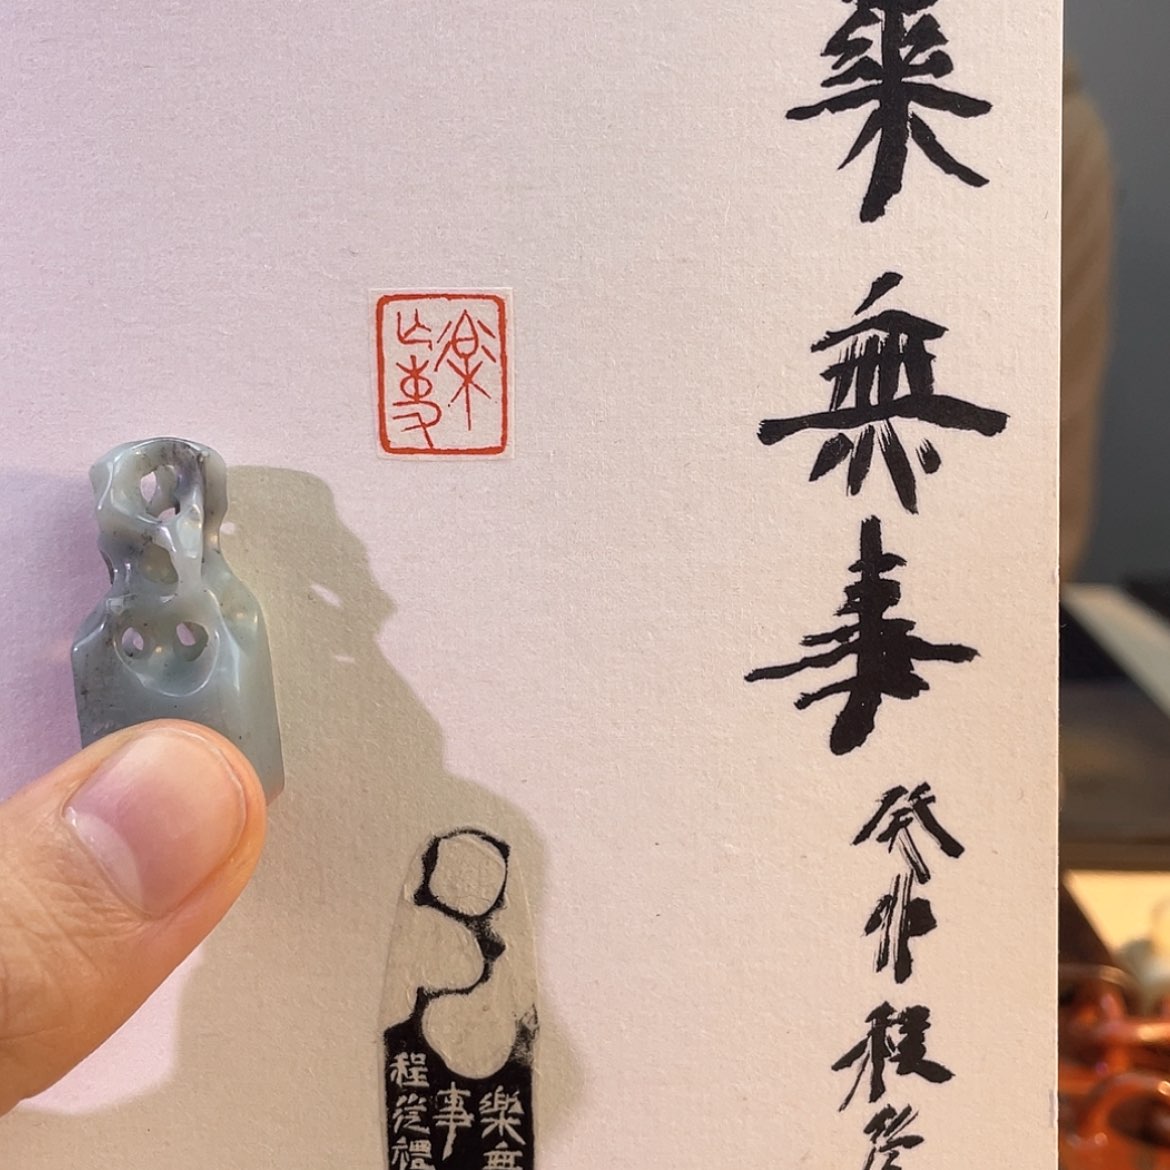 樂無事癸卯程
樂亡事
樂無
事
程從禮